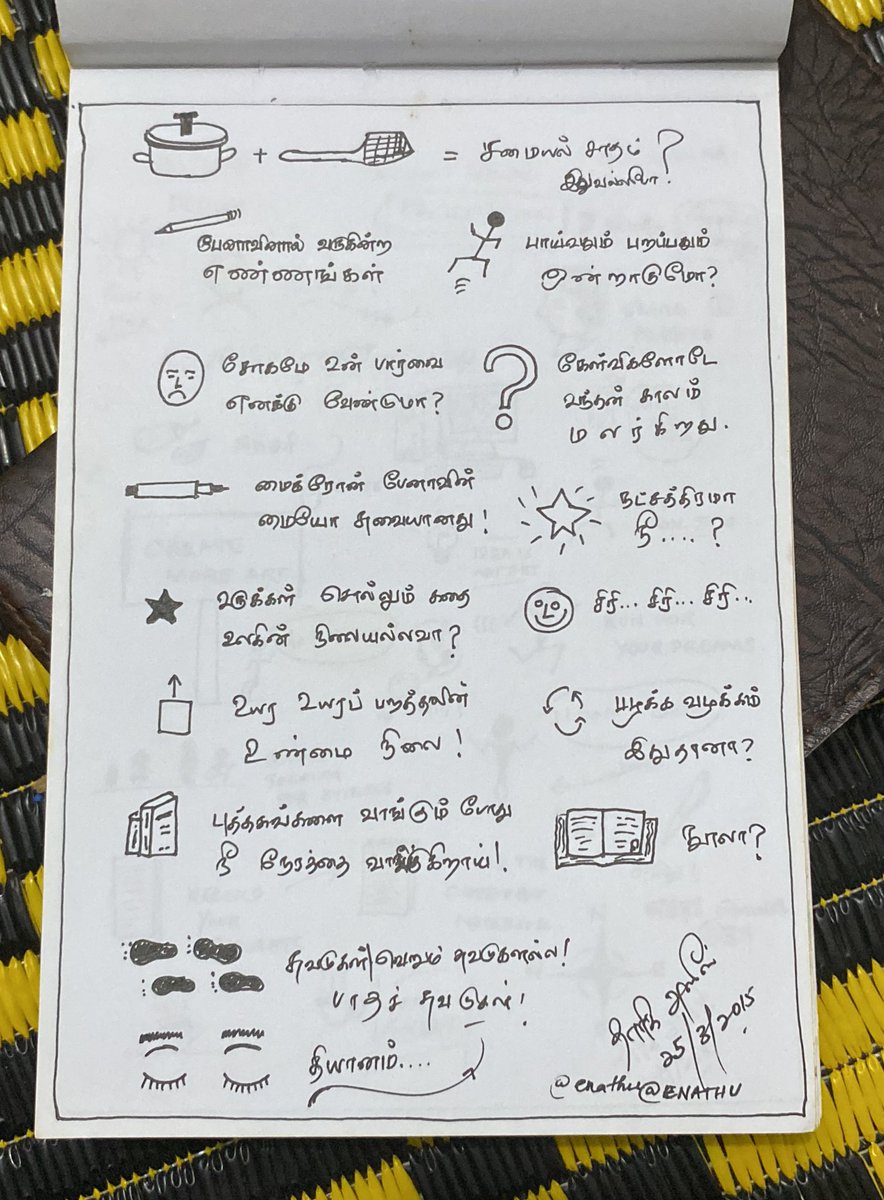 + = சமையல் சாதம்
இதுவல்லவோ?
பேனாவினால் வருகின்ற
எண்ணங்கள்
பாய்வதும் பறப்பதும்
ஒன்றாகுமோ?
சோகமே உன் பார்வை
எனக்கு வேண்டுமா?
?
கேள்விகளோடே
வந்தன் காலம்
மலர்கிறது.
மைக்ரோன் பேனாவின்
மையோ சுவையானது!
நட்சத்திரமா
நீ....?
உருக்கள் சொல்லும் கதை
உலகின் நிலையல்லவா?
சிரி... சிரி... சிரி...
உயர உயரப் பறத்தலின்
உண்மை நிலை!
பழக்க வழக்கம்
இதுதானா?
புத்தகங்களை வாங்கும் போது
நீ நேரத்தை வாங்குகிறாய்!
நூலா?
சுவடுகள் வெறும் சுவடுகளல்ல!
பாதச் சுவடுகள்!
தியானம்....
தாரிக் அஸீஸ்
25/3/2015
@enathu @ENATHU